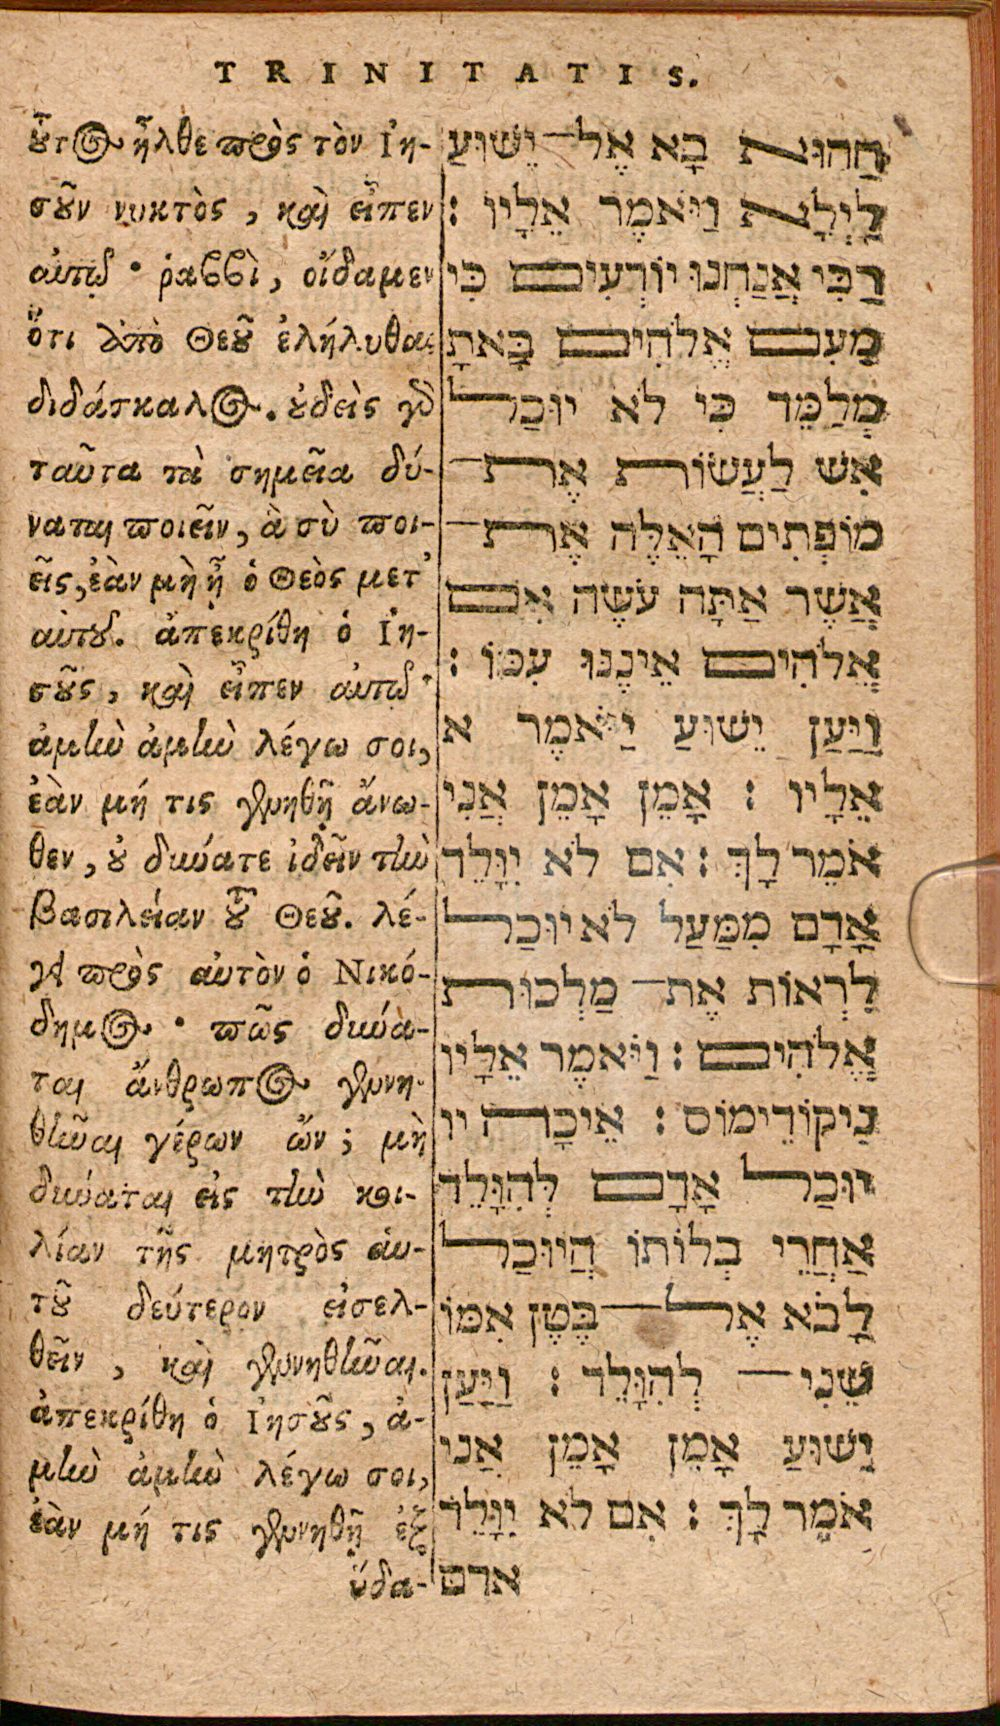 TRINITATIS.
οὗτος ἦλθε πρὸς τὸν Ἰη-
σοῦν νυκτὸς, καὶ εἶπεν
αὐτῷ· ῥαββὶ, οἴδαμεν
ὅτι ἀπὸ Θεοῦ ἐλήλυθας
διδάσκαλος. οὐδεὶς γὰρ
ταῦτα τὰ σημεῖα δύ-
ναται ποιεῖν, ἃ σὺ ποι-
εῖς, ἐὰν μὴ ᾖ ὁ Θεὸς μετ᾽
αὐτοῦ. ἀπεκρίθη ὁ Ἰη-
σοῦς, καὶ εἶπεν αὐτῷ·
ἀμὴν ἀμὴν λέγω σοι,
ἐὰν μή τις γεννηθῇ ἄνω-
θεν, οὐ δύναται ἰδεῖν τὴν
βασιλείαν τοῦ Θεοῦ. λέ-
γει πρὸς αὐτὸν ὁ Νικό-
δημος· πῶς δύνα-
ται ἄνθρωπος γεννη-
θῆναι γέρων ὤν; μὴ
δύναται εἰς τὴν κοι-
λίαν τῆς μητρὸς αὑ-
τοῦ δεύτερον εἰσελ-
θεῖν, καὶ γεννηθῆναι.
ἀπεκρίθη ὁ Ἰησοῦς, ἀ-
μὴν ἀμὴν λέγω σοι,
ἐὰν μή τις γεννηθῇ ἐξ
ὕδα-
הַהוּא בָּא אֶל־יֵשׁוּעַ
לַיְלָה וַיֹּאמֶר אֵלָיו :
רַבִּי אֲנַחְנוּ יוֹדְעִים כִּי
מֵעִם אֱלֹהִים בָּאתָ
מְלַמֵּד כִּי לֹא יוּכַל
אִשׁ לַעֲשׂוֹת אֶת־
מוֹפְתִים הָאֵלֶּה אֶת־
אֲשֶׁר אַתָּה עֹשֶׂה אִם
אֱלֹהִים אֵינֶנּוּ עִמּוֹ :
וַיַּעַן יֵשׁוּעַ יַּוֹּאמֶר א
אֵלָיו : אָמֵן אָמֵן אֲנִי
אֹמֵר לָךְ : אִם לֹא יִוָּלֵד
אָדָם מִמַּעַל לֹא יוּכַל
לִרְאוֹת אֶת־ מַלְכוּת
אֱלֹהִים : וַיֹּאמֶר אֵלָיו
נִיקוֹדֵימוֹס : אֵיכָה יו
יוּכַל אָדָם לְהִוָּלֵד
אַחֲרֵי בְלוֹתוֹ הֲיוּכַל
לָבֹא אֶל־בֶּטֶן אִמּוֹ
שֵׁנִי־ לְהִוָּלֵד : וַיַּעַן
יֵשׁוּעַ אָמֵן אָמֵן אֲנִי
אֹמֵר לָךְ : אִם לֹא יִוָּלֵד
אדם